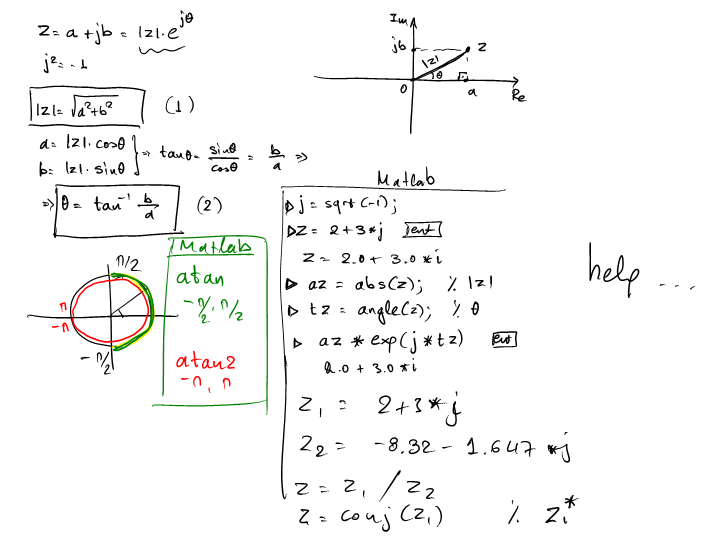 z = a + jb = |z|·e^{jθ}
j² = -1
|z| = √a²+b² (1)
a = |z|·cosθ
b = |z|·sinθ
⇒ tanθ = sinθ/cosθ = b/a ⇒
⇒ θ = tan⁻¹ b/a (2)
Im
jb
z
|z|
θ
0
a
Re
π/2
π
-π
-π/2
Matlab
atan
-π/2, π/2
atan2
-π, π
Matlab
▷ j = sqrt(-1);
▷ z = 2+3*j ent
z = 2.0 + 3.0*i
▷ az = abs(z); % |z|
▷ tz = angle(z); % θ
▷ az * exp(j*tz) ent
2.0 + 3.0*i
z₁ = 2+3*j
z₂ = -8.32 - 1.647*j
z = z₁ / z₂
z = conj(z₁) % z₁*
help ...